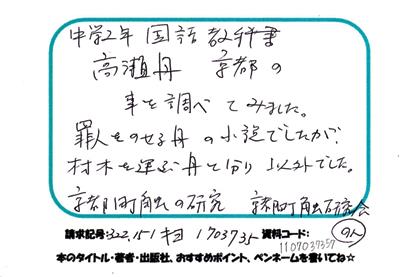 中学2年 国語教科書
高瀬舟 京都の
事を調べてみました。
罪人をのせる舟の小説でしたが、
材木を運ぶ舟と分り 以外でした。
京都町触の研究 京都町触研究会
請求記号:322.15 1703735 資料コード:1107037357
本のタイトル・著者・出版社、おすすめポイント、ペンネームを書いてね☆